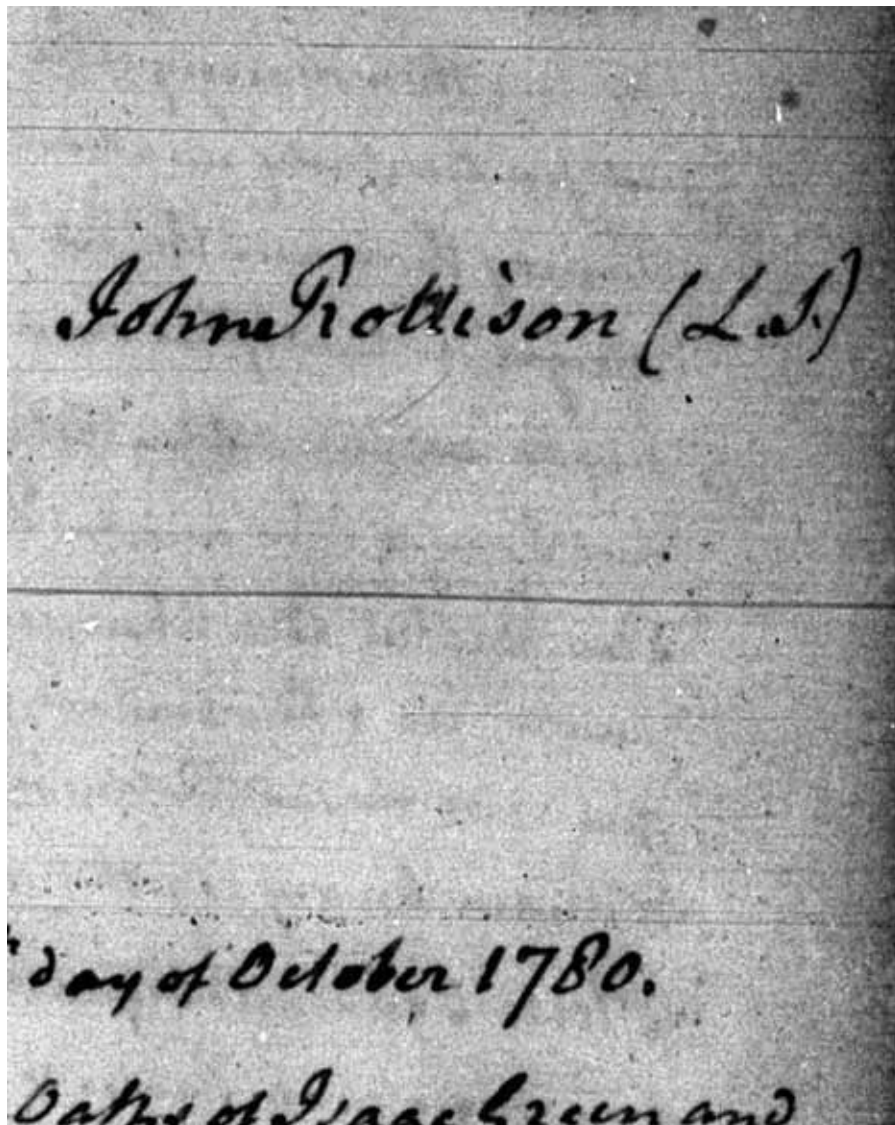 John Rollison (L.S.)
day of October 1780.
Oaths of Isaac Green and